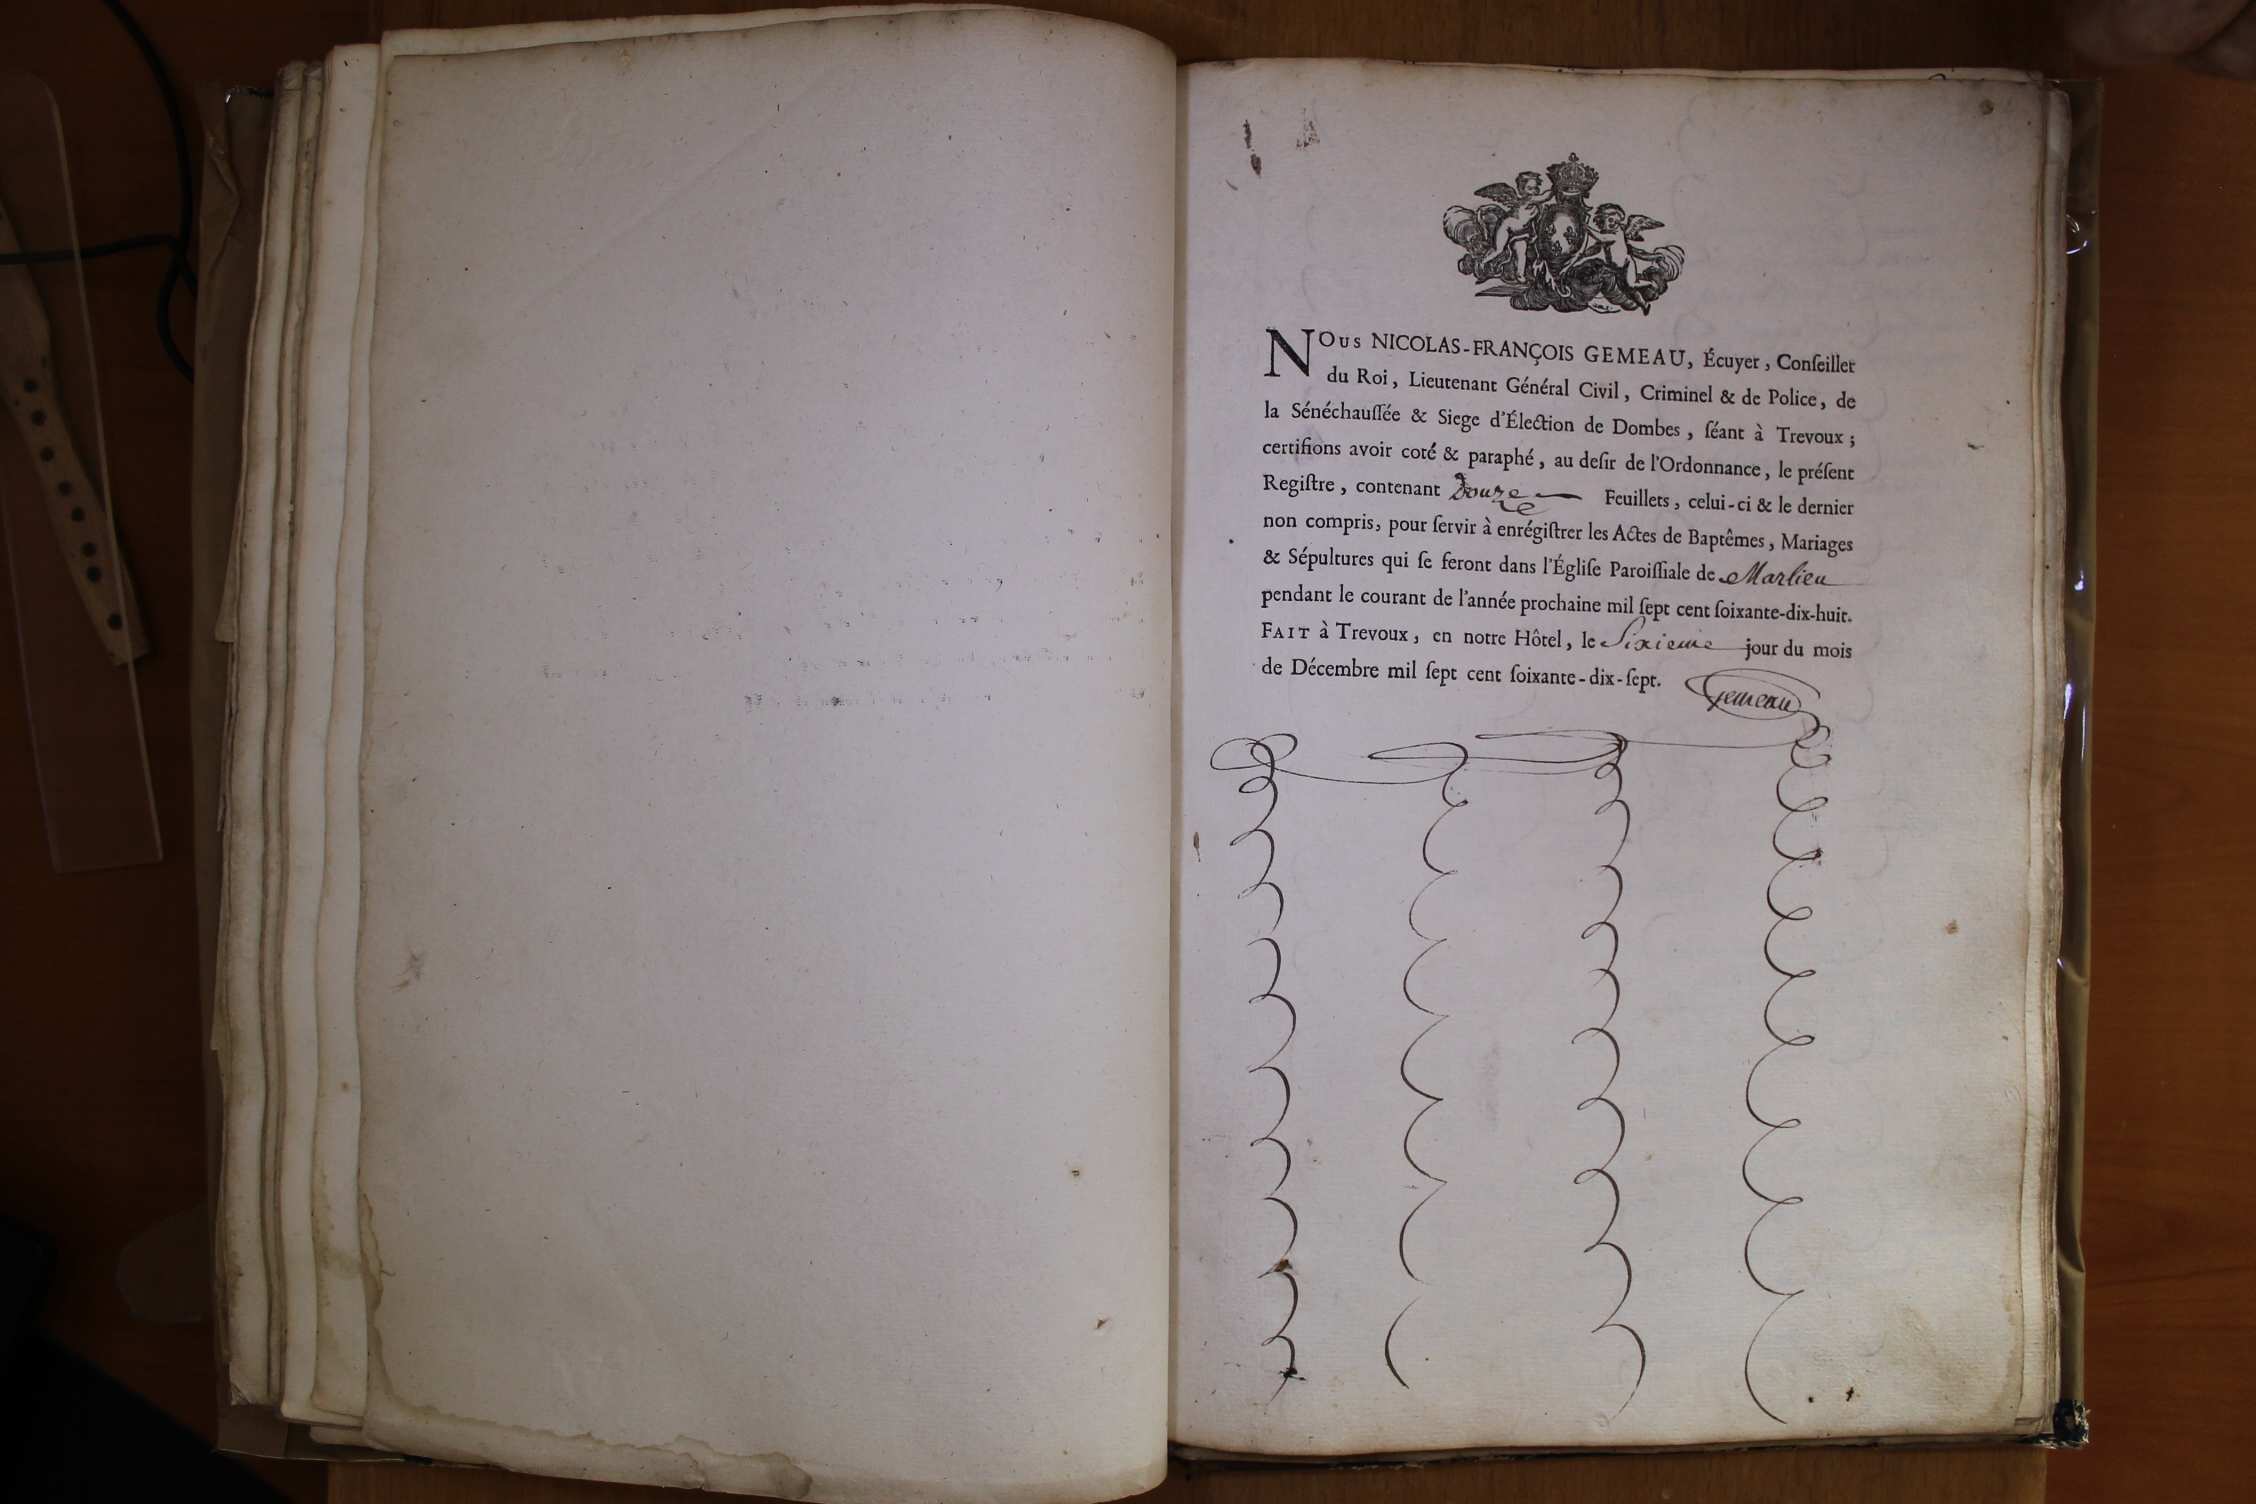 NOus NICOLAS-FRANÇOIS GEMEAU, Écuyer, Conſeiller
du Roi, Lieutenant Général Civil, Criminel & de Police, de
la Sénéchauſſée & Siege d'Élection de Dombes, ſéant à Trevoux;
certifions avoir coté & paraphé, au deſir de l'Ordonnance, le préſent
Regiſtre, contenant Douze Feuillets, celui-ci & le dernier
non compris, pour ſervir à enrégiſtrer les Actes de Baptêmes, Mariages
& Sépultures qui ſe feront dans l'Égliſe Paroiſſiale de Marlieu
pendant le courant de l'année prochaine mil ſept cent ſoixante-dix-huit.
FAIT à Trevoux, en notre Hôtel, le Sixieme jour du mois
de Décembre mil ſept cent ſoixante-dix-ſept.
Gemeau